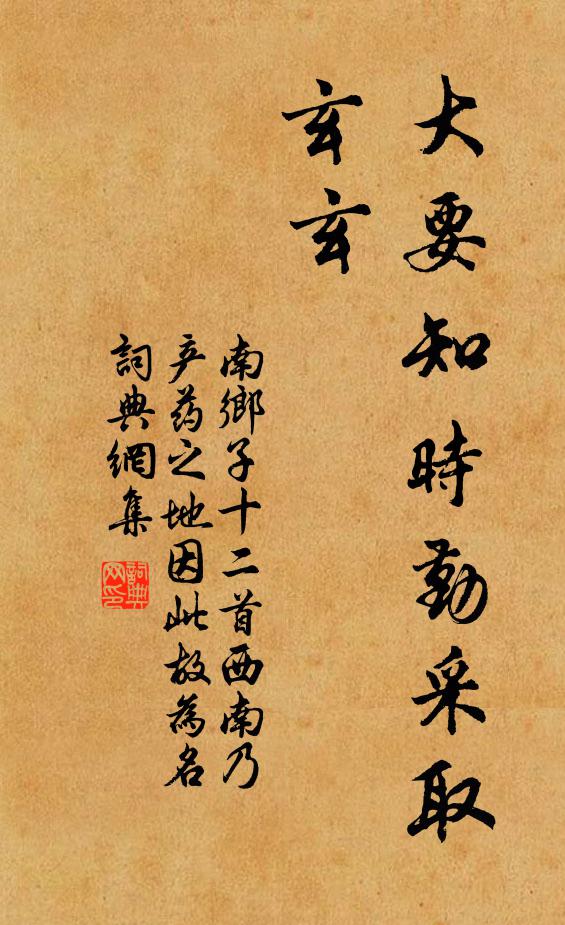 大要知時勤采取
玄玄
南鄉子十二首西南乃
产药之地因此故為名
詞典網集
詞典
网印